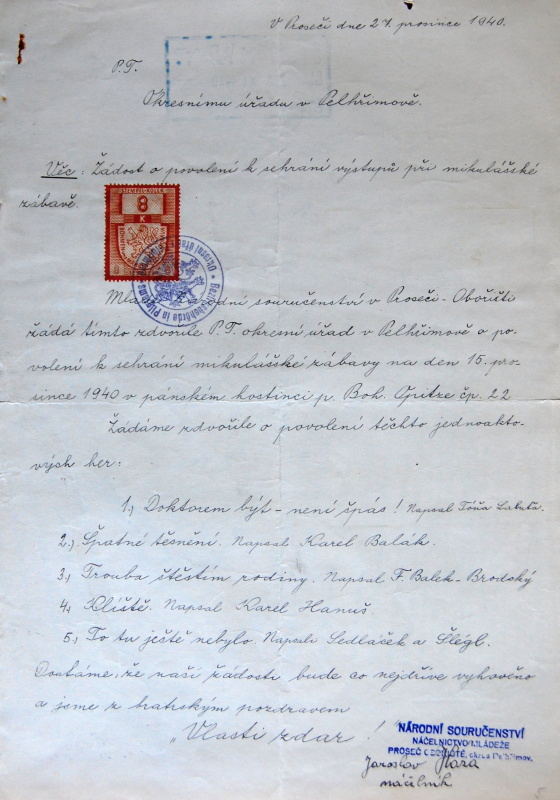 V Proseči dne 27. prosince 1940.
P.T.
Okresnímu úřadu v Pelhřimově.
Věc: Žádost o povolení k sehrání výstupů při mikulášské
zábavě.
STEMPEL-KOLEK
8
K
Národní souručenství v Proseči-Obořišti
žádá tímto zdvořile P.T. okresní úřad v Pelhřimově o po-
volení k sehrání mikulášské zábavy na den 15. pro-
since 1940 v pánském hostinci p. Boh. Opitze čp. 22
Žádáme zdvořile o povolení těchto jednoakto-
vých her:
1.) Doktorem být - není špás! Napsal Tóňa Labuťa.
2.) Špatné těsnění. Napsal Karel Balák.
3.) Trouba štěstím rodiny. Napsal F. Balek-Brodský
4.) Klíště. Napsal Karel Hanuš
5.) To tu ještě nebylo. Napsali Sedláček a Šlégl.
Doufáme, že naší žádosti bude co nejdříve vyhověno
a jsme z bratrským pozdravem
"Vlasti zdar!"
NÁRODNÍ SOURUČENSTVÍ
NÁČELNICTVO MLÁDEŽE
PROSEČ OBOŘIŠTĚ, okres Pelhřimov.
Jaroslav
náčelník